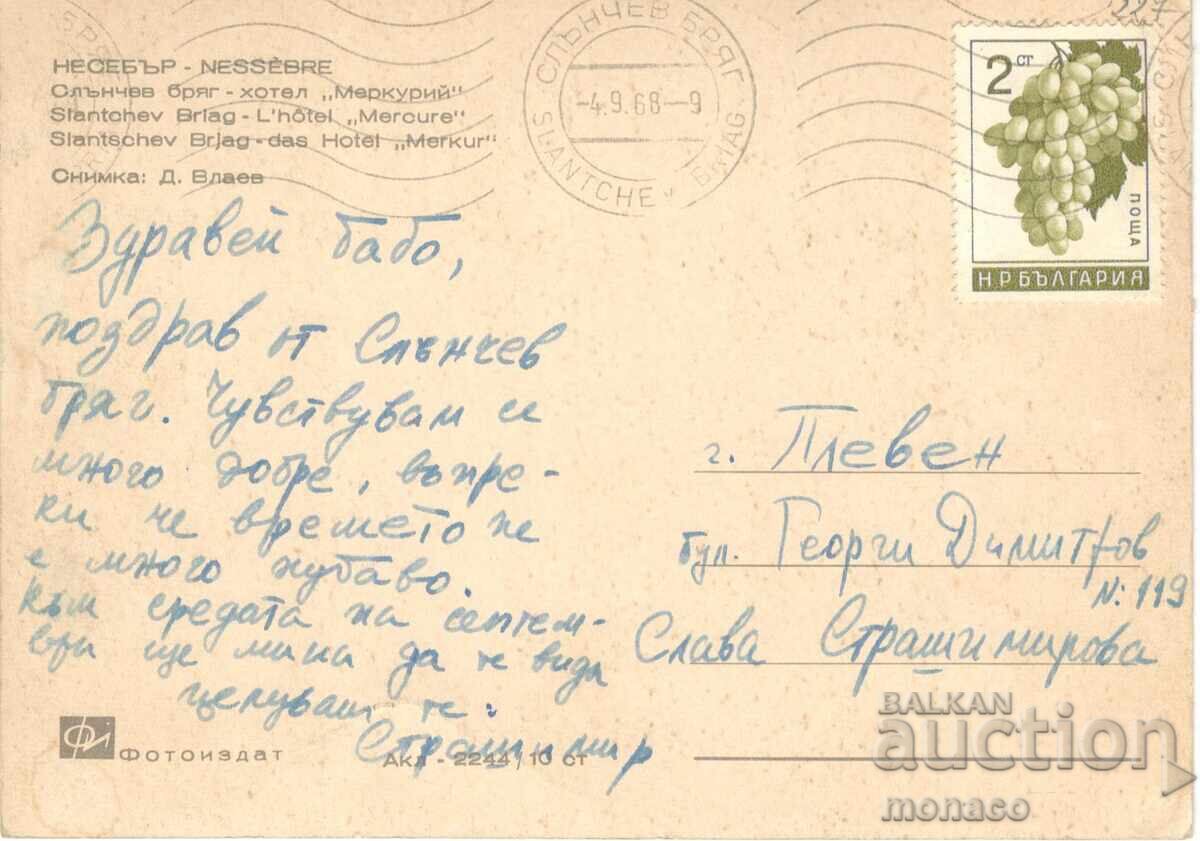 НЕСЕБЪР - NESSÈBRE
Слънчев бряг - хотел „Меркурий“
Slantchev Briag - L'hôtel „Mercure“
Slantschev Brjag - das Hotel „Merkur“
Снимка: Д. Влаев
СЛЪНЧЕВ БРЯГ
-4.9.68-9
SLANTCHEV BRIAG
2 СТ
ПОЩА
Н.Р.БЪЛГАРИЯ
Здравей бабо,
поздрав от Слънчев
бряг. Чувствувам се
много добре, въпре-
ки че времето не
е много хубаво.
към средата на септем-
ври ще мина да те видя
целуващ те:
Страшимир
г. Плевен
бул. Георги Димитров
N: 119
Слава Страшимирова
Фотоиздат
Акл - 2244/10 ст
BALKAN
auction
monaco